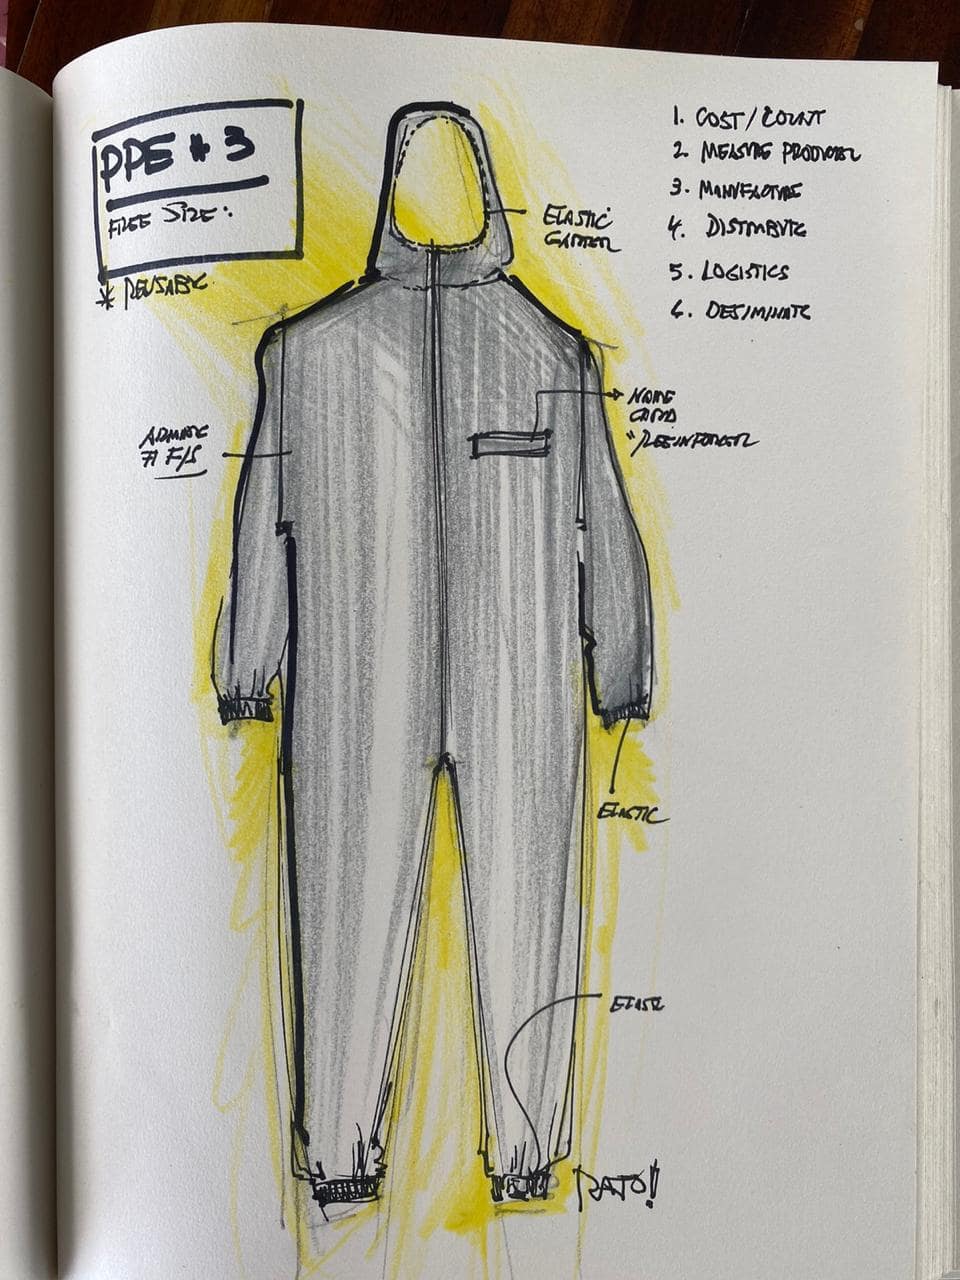 PPE # 3
FREE SIZE:
* REUSABLE
1. COST/COUNT
2. MEASURE PRODUCER
3. MANUFACTURE
4. DISTRIBUTE
5. LOGISTICS
6. DESIMINATE
ELASTIC
GARTER
NAME
CARD
ELASTIC
ELASTIC
RATO!